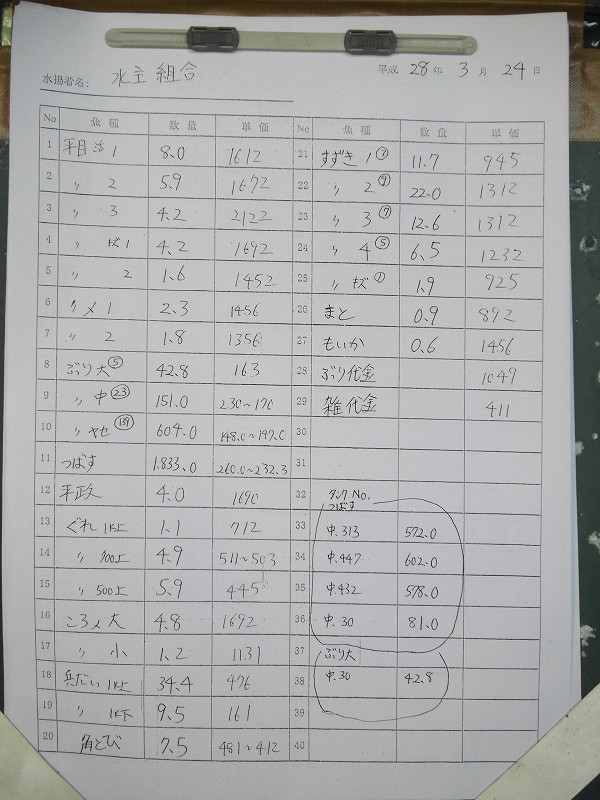 水揚者名: 水主組合
平成 28年 3月 24日
No 魚種 数量 単価
1 平目活1 8.0 1612
2 〃 2 5.9 1672
3 〃 3 4.2 2122
4 〃 キズ1 4.2 1692
5 〃 2 1.6 1452
6 〃 メ1 2.3 1456
7 〃 2 1.8 1356
8 ぶり大⑤ 42.8 163
9 〃 中㉓ 151.0 230~170
10 〃 ヤセ(139) 604.0 148.0~147.0
11 つばす 1.833.0 260.0~232.3
12 平政 4.0 1690
13 ぐれ 1K上 1.1 712
14 〃 700上 4.9 511~503
15 〃 500上 5.9 445
16 ころ 大 4.8 1692
17 〃 小 1.2 1131
18 兵だい 1K上 34.4 476
19 〃 1K下 9.5 161
20 角とび 7.5 481~412
No 魚種 数量 単価
21 すずき 1③ 11.7 945
22 〃 2⑨ 22.0 1312
23 〃 3⑦ 12.6 1312
24 〃 4⑤ 6.5 1232
25 〃 キズ① 1.9 925
26 まと 0.9 892
27 もいか 0.6 1456
28 ぶり代金 1047
29 雑代金 411
30
31
32 タンクNo.
つばす
33 中.313 572.0
34 中.447 602.0
35 中.432 578.0
36 中.30 81.0
37 ぶり大
38 中.30 42.8
39
40